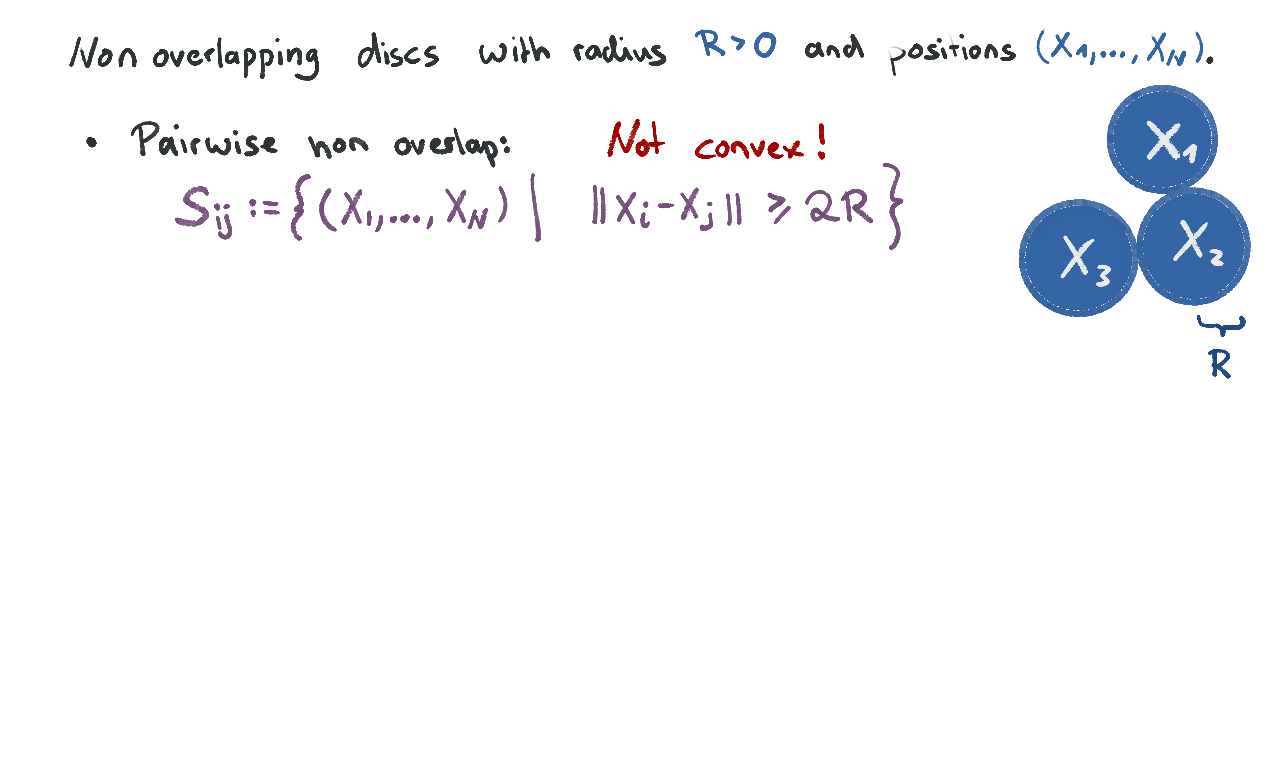 Non overlapping discs with radius R>0 and positions (X₁,...,X_N).
• Pairwise non overlap: Not convex!
S_ij := {(X₁,...,X_N) | ||X_i-X_j|| ≥ 2R}
X₁
X₂
X₃
R